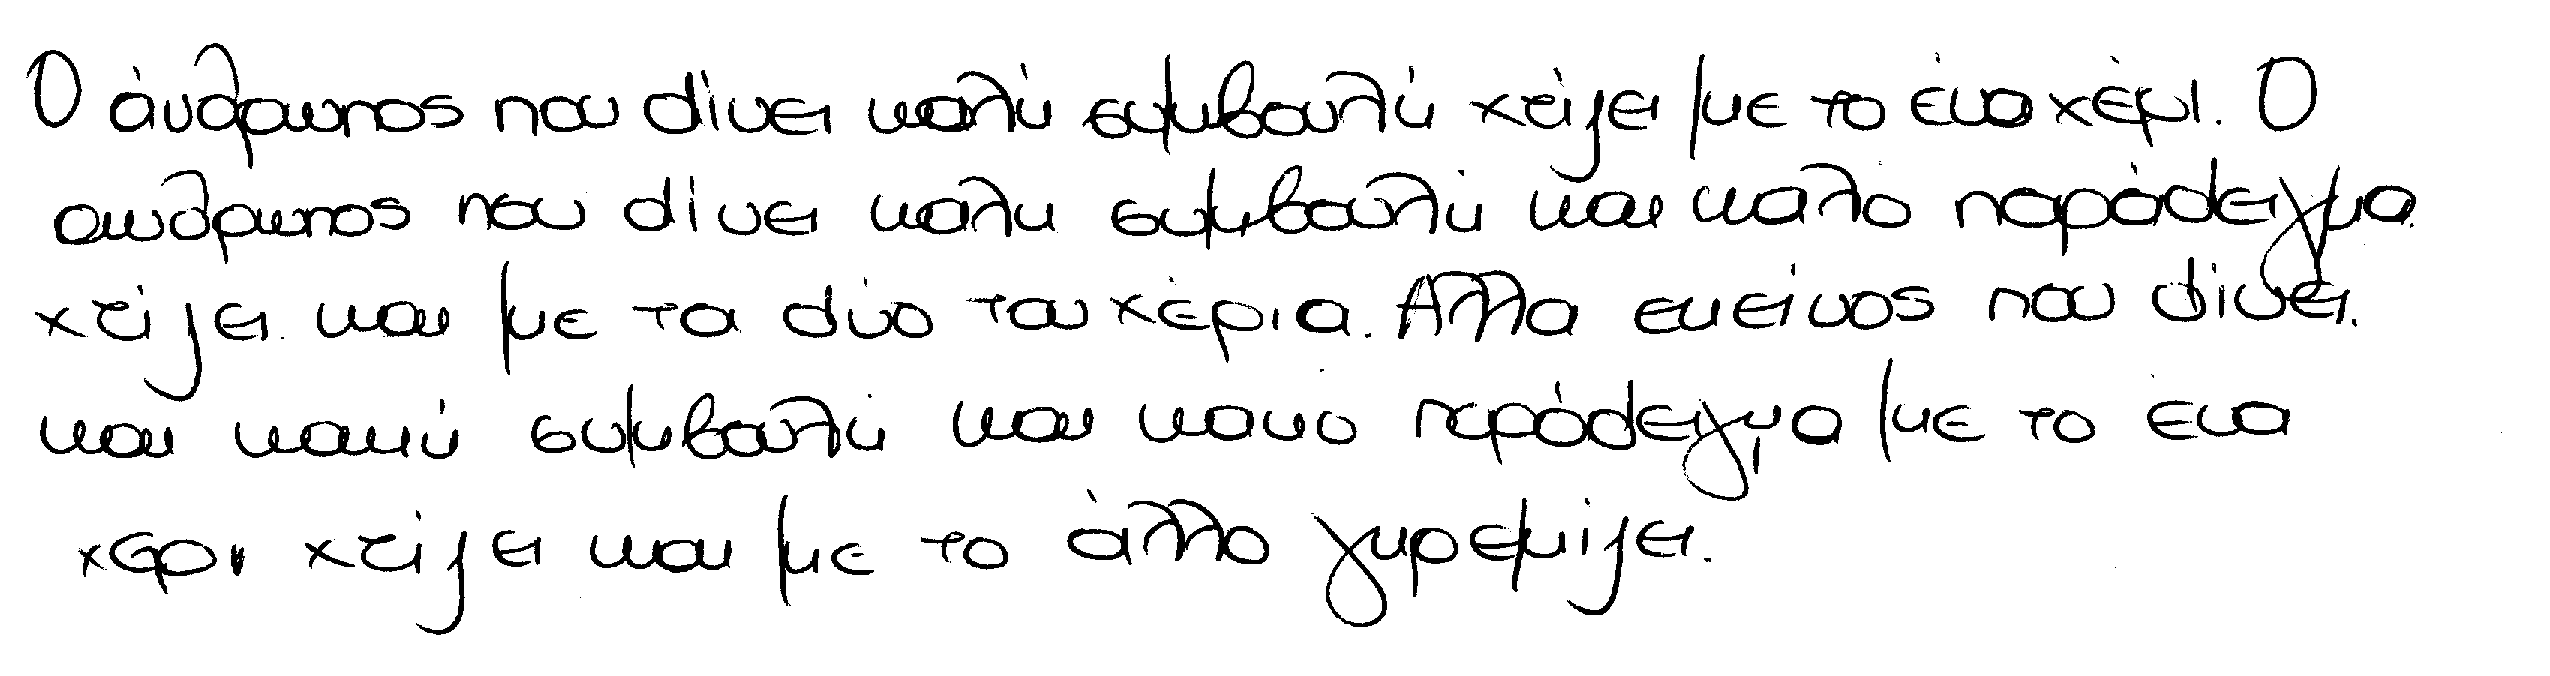 Ο άνθρωπος που δίνει καλή συμβουλή χτίζει με το ένα χέρι. Ο
ανθρωπος που δίνει καλη συμβουλή και καλό παράδειγμα
χτίζει και με τα δύο του χέρια. Αλλα εκείνος που δίνει
και κακή συμβουλή και κακο παράδειγμα με το ενα
χερι χτίζει και με το άλλο γκρεμίζει.